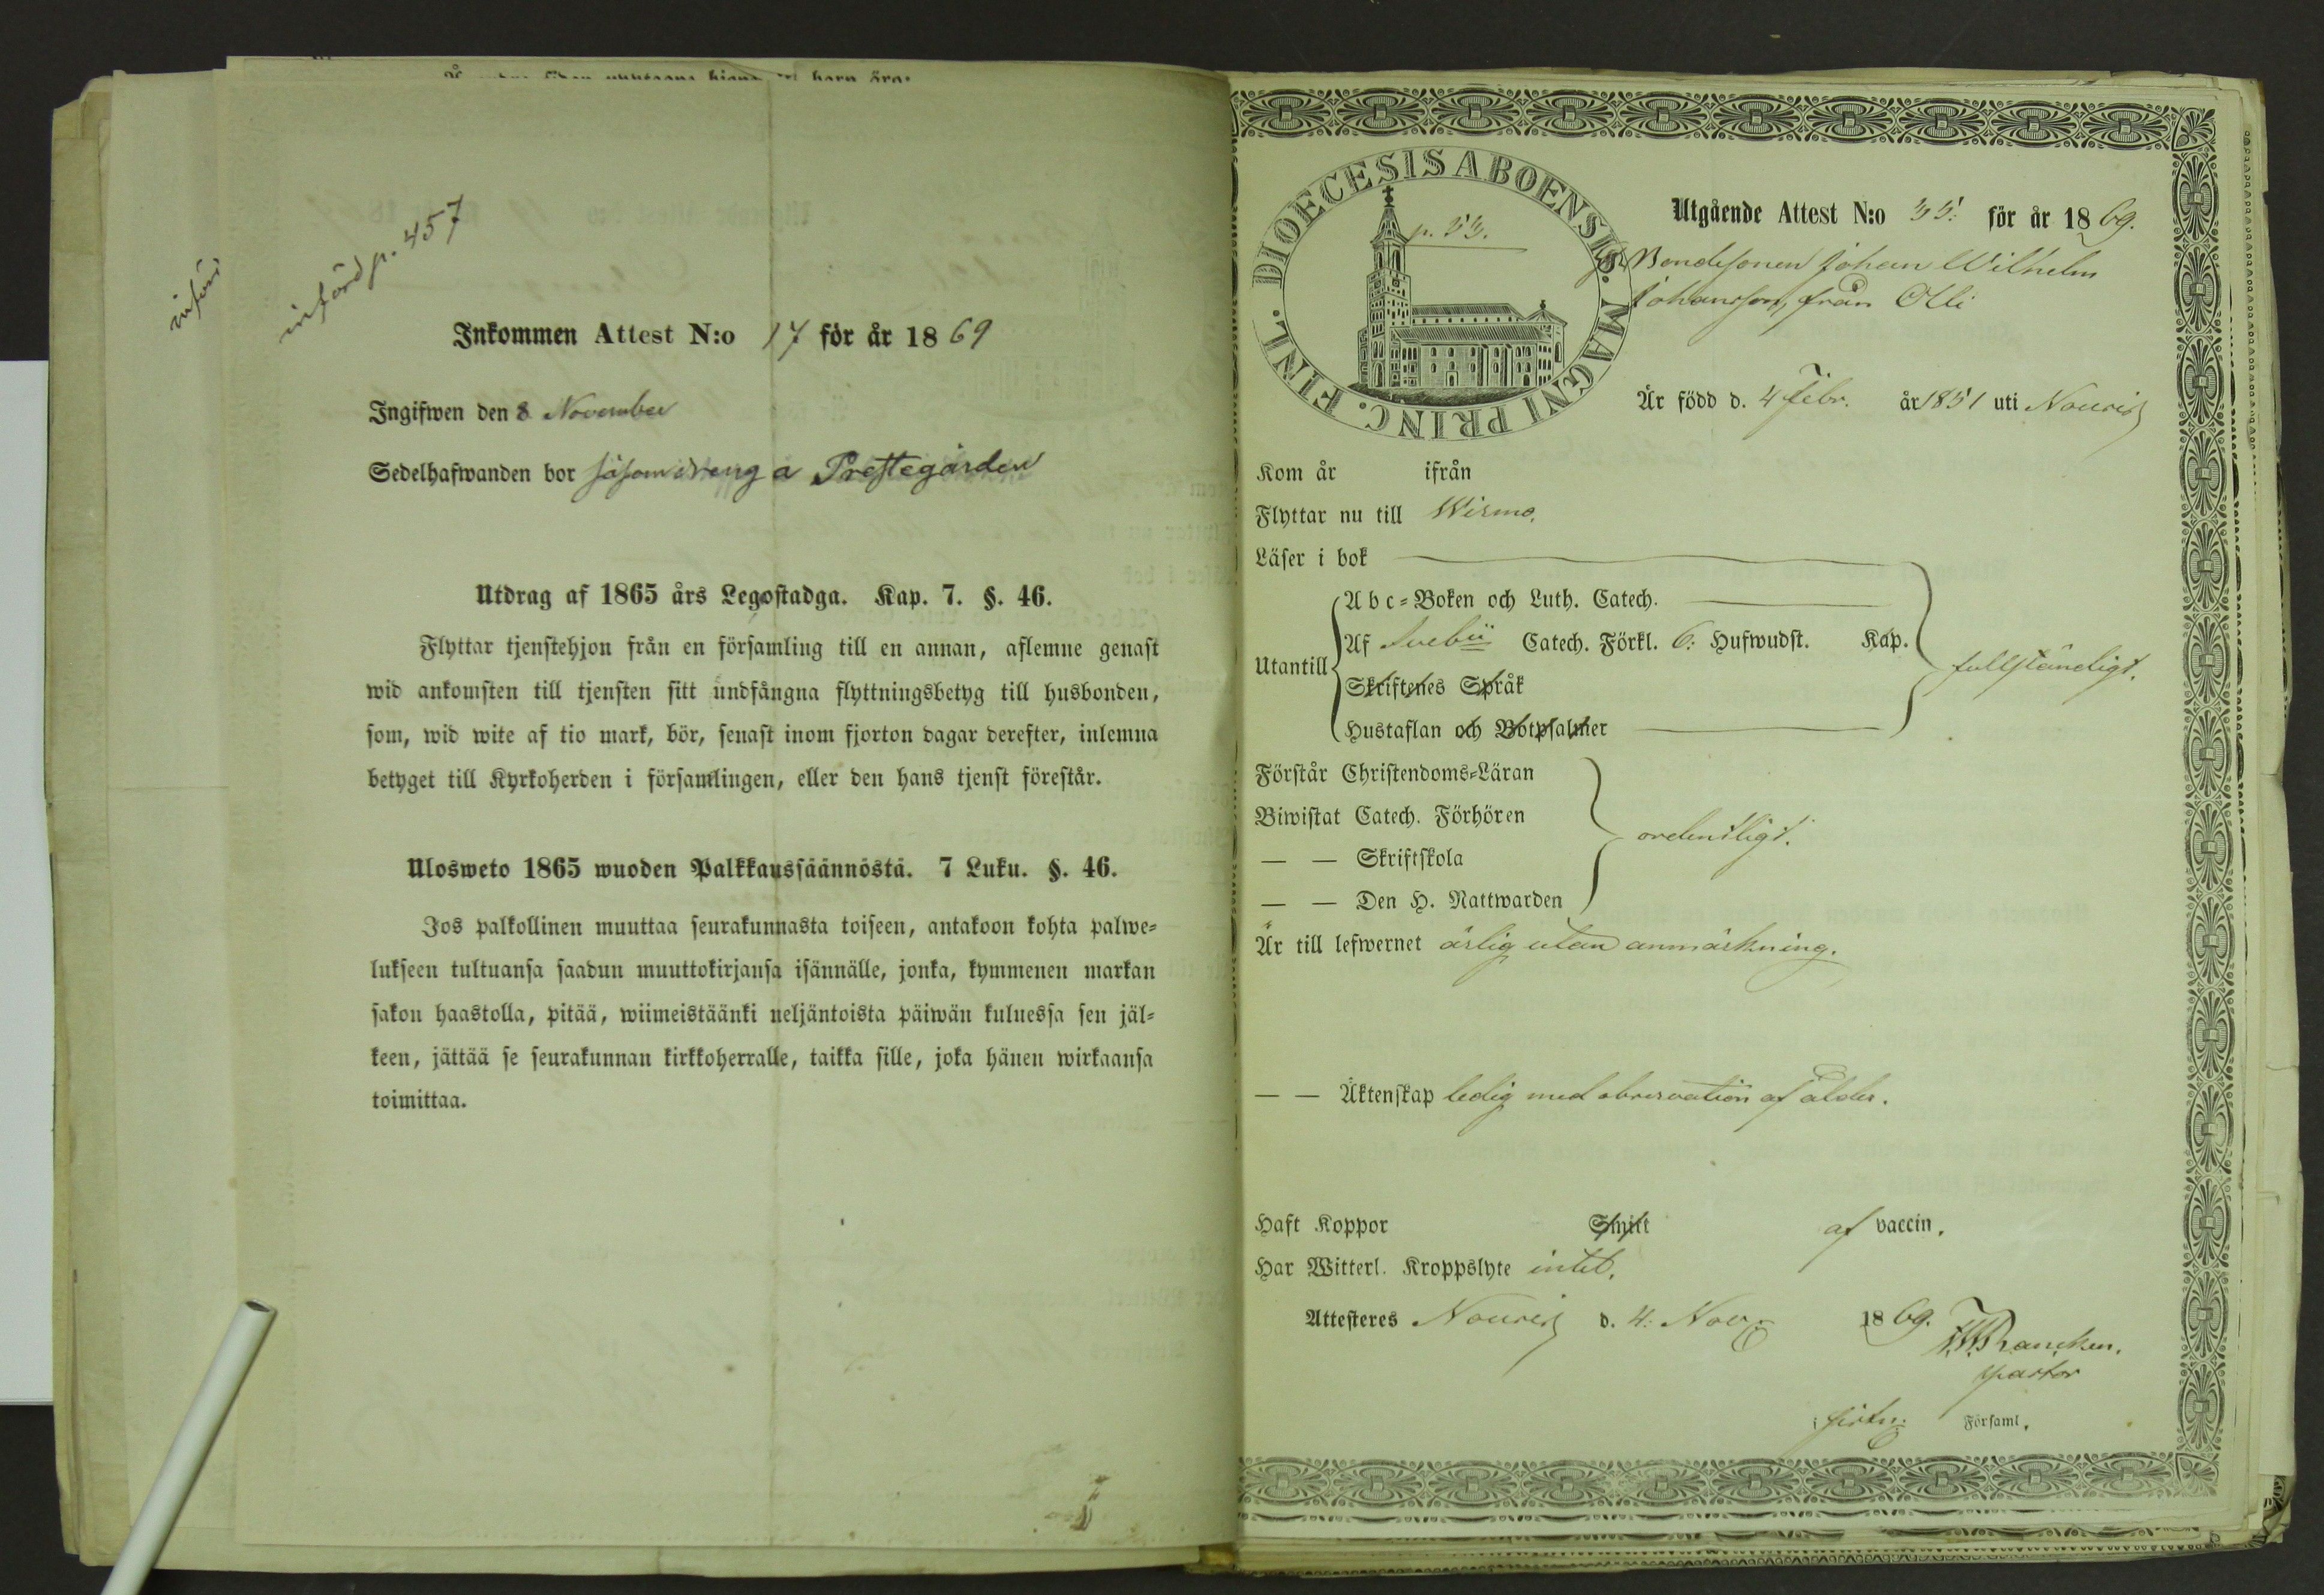 införd p. 457
Inkommen Attest N:o 17 för år 1869
Ingifwen den 8 November
Sedelhafwanden bor såsom dreng a Prestegården
Utdrag af 1865 års Legostadga. Kap. 7. §. 46.
Flyttar tjenstehjon från en församling till en annan, aflemne genast
wid ankomsten till tjensten sitt undfångna flyttningsbetyg till husbonden,
som, wid wite af tio mark, bör, senast inom fjorton dagar derefter, inlemna
betyget till Kyrkoherden i församlingen, eller den hans tjenst förestår.
Ulosweto 1865 wuoden Palkkaussäännöstä. 7 Luku. §. 46.
Jos palkollinen muuttaa seurakunnasta toiseen, antakoon kohta palwe-
lukseen tultuansa saadun muuttokirjansa isännälle, jonka, kymmenen markan
sakon haastolla, pitää, wiimeistäänki neljäntoista päiwän kuluessa sen jäl-
keen, jättää se seurakunnan kirkkoherralle, taikka sille, joka hänen wirkaansa
toimittaa.
DIOECESIS ABOENSIS. MAGNI PRINC. FINL.
p. 33.
Utgående Attest N:o 35. för år 1869.
Bondesonen Johan Wilhelm
Johansson, från Olli
Är född d. 4 Febr. år 1851 uti Nousis
Kom år ifrån
Flyttar nu till Wirmo.
Läser i bok
Utantill
Abc-Boken och Luth. Catech.
Af Svebii Catech. Förkl. 6. Hufwudst. Kap.
Skriftenes Språk
Hustaflan och Botpsalmer
fullständigt.
Förstår Christendoms-Läran
Biwistat Catech. Förhören
— — Skriftskola
— — Den H. Nattwarden
ordentligt.
Är till lefwernet ärlig utan anmärkning.
— — Äktenskap ledig med observation af ålder.
Haft Koppor Smitt af vaccin.
Har Witterl. Kroppslyte intet.
Attesteres Nousis d. 4. Nov. 1869.
Rancken.
pastor
i Församl.